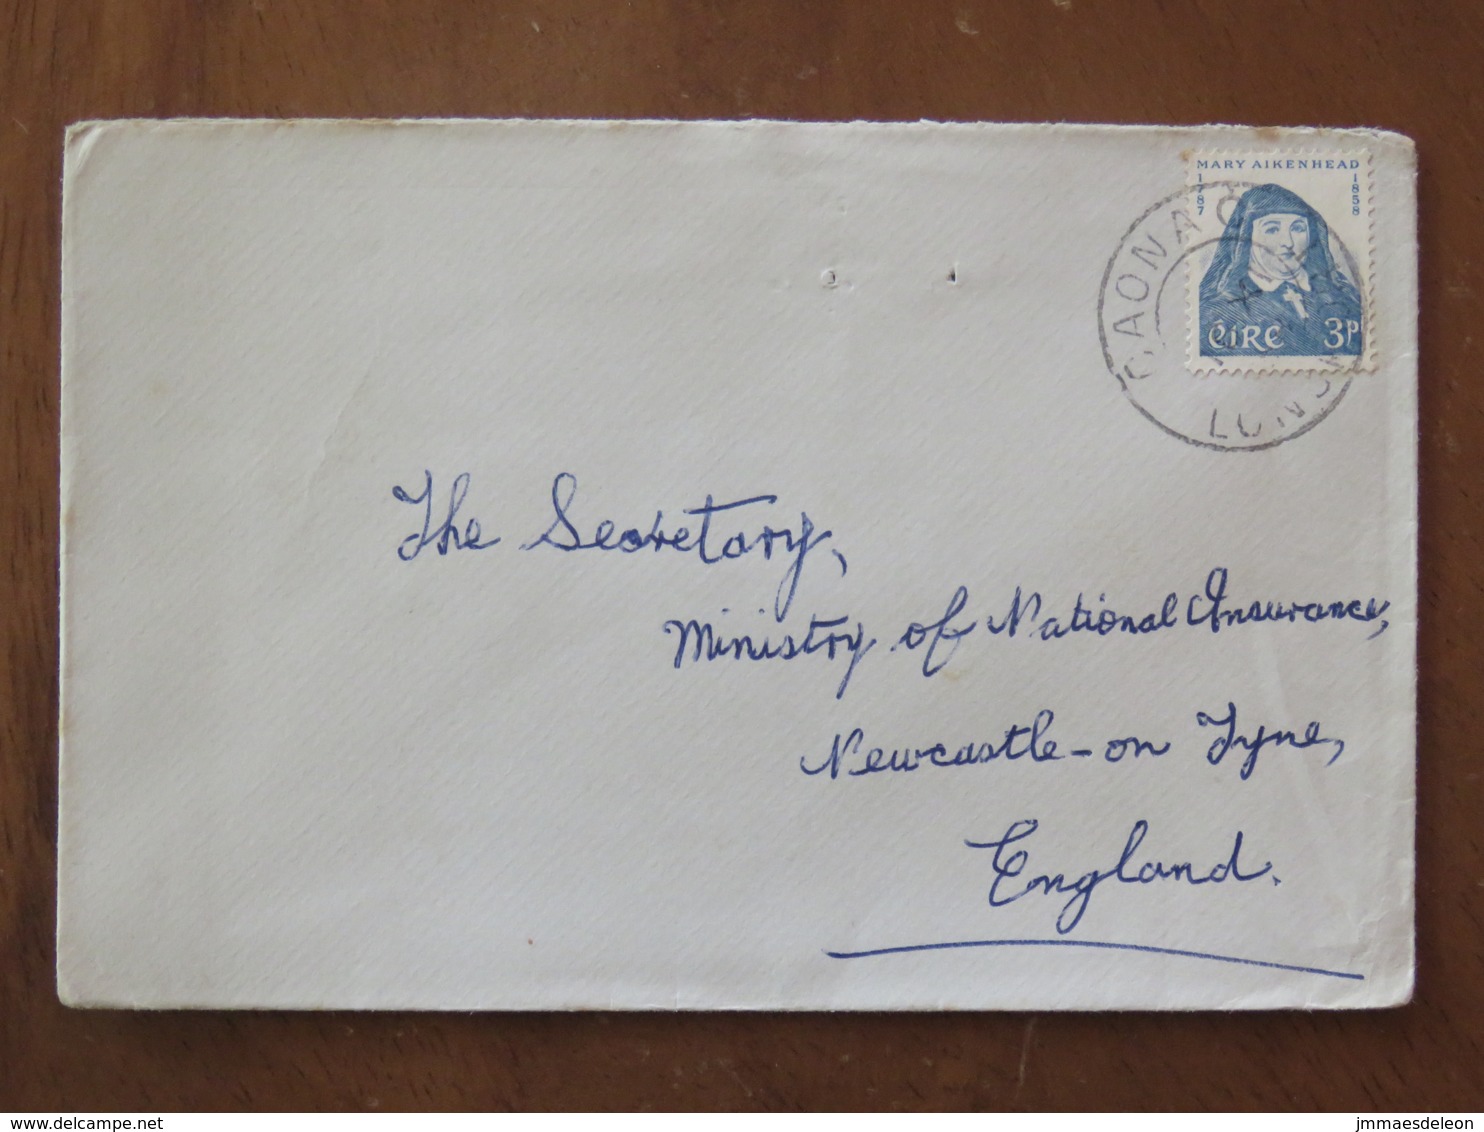 MARY AIKENHEAD
1787
1858
ÉIRE 3P
The Secretary,
Ministry of National Insurance,
Newcastle-on Tyne,
England.
www.delcampe.net
jmmaesdeleon